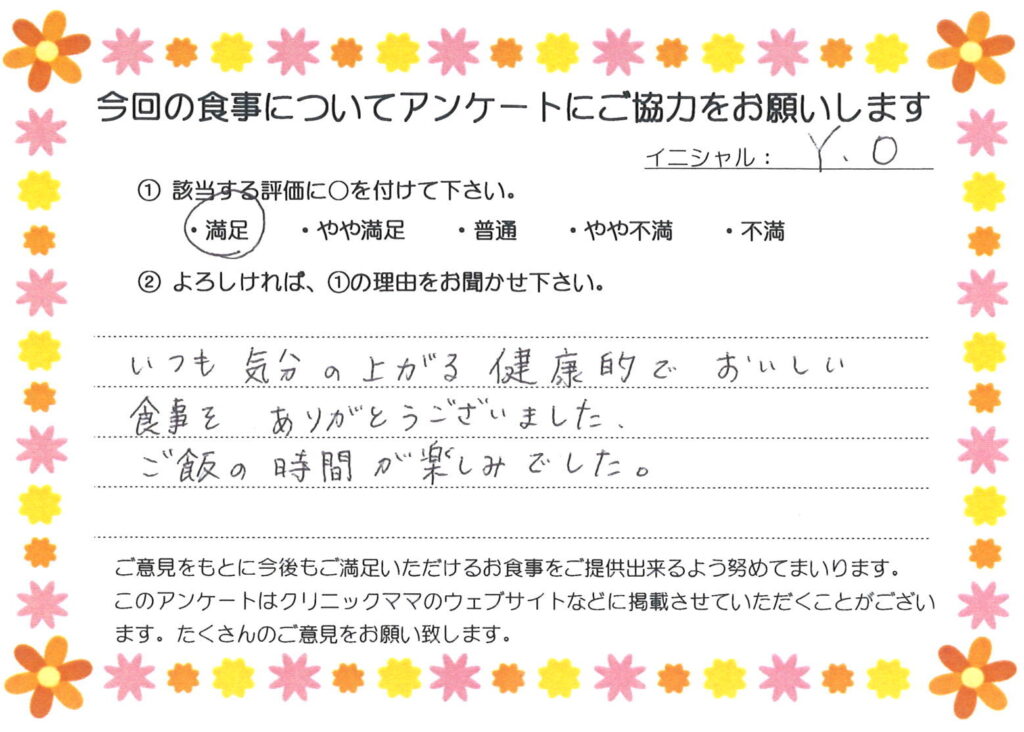 今回の食事についてアンケートにご協力をお願いします
イニシャル： Y.O
① 該当する評価に○を付けて下さい。
・満足 ・やや満足 ・普通 ・やや不満 ・不満
② よろしければ、①の理由をお聞かせ下さい。
いつも 気分の上がる 健康的で おいしい
食事を ありがとうございました、
ご飯の時間が楽しみでした。
ご意見をもとに今後もご満足いただけるお食事をご提供出来るよう努めてまいります。
このアンケートはクリニックママのウェブサイトなどに掲載させていただくことがござい
ます。たくさんのご意見をお願い致します。